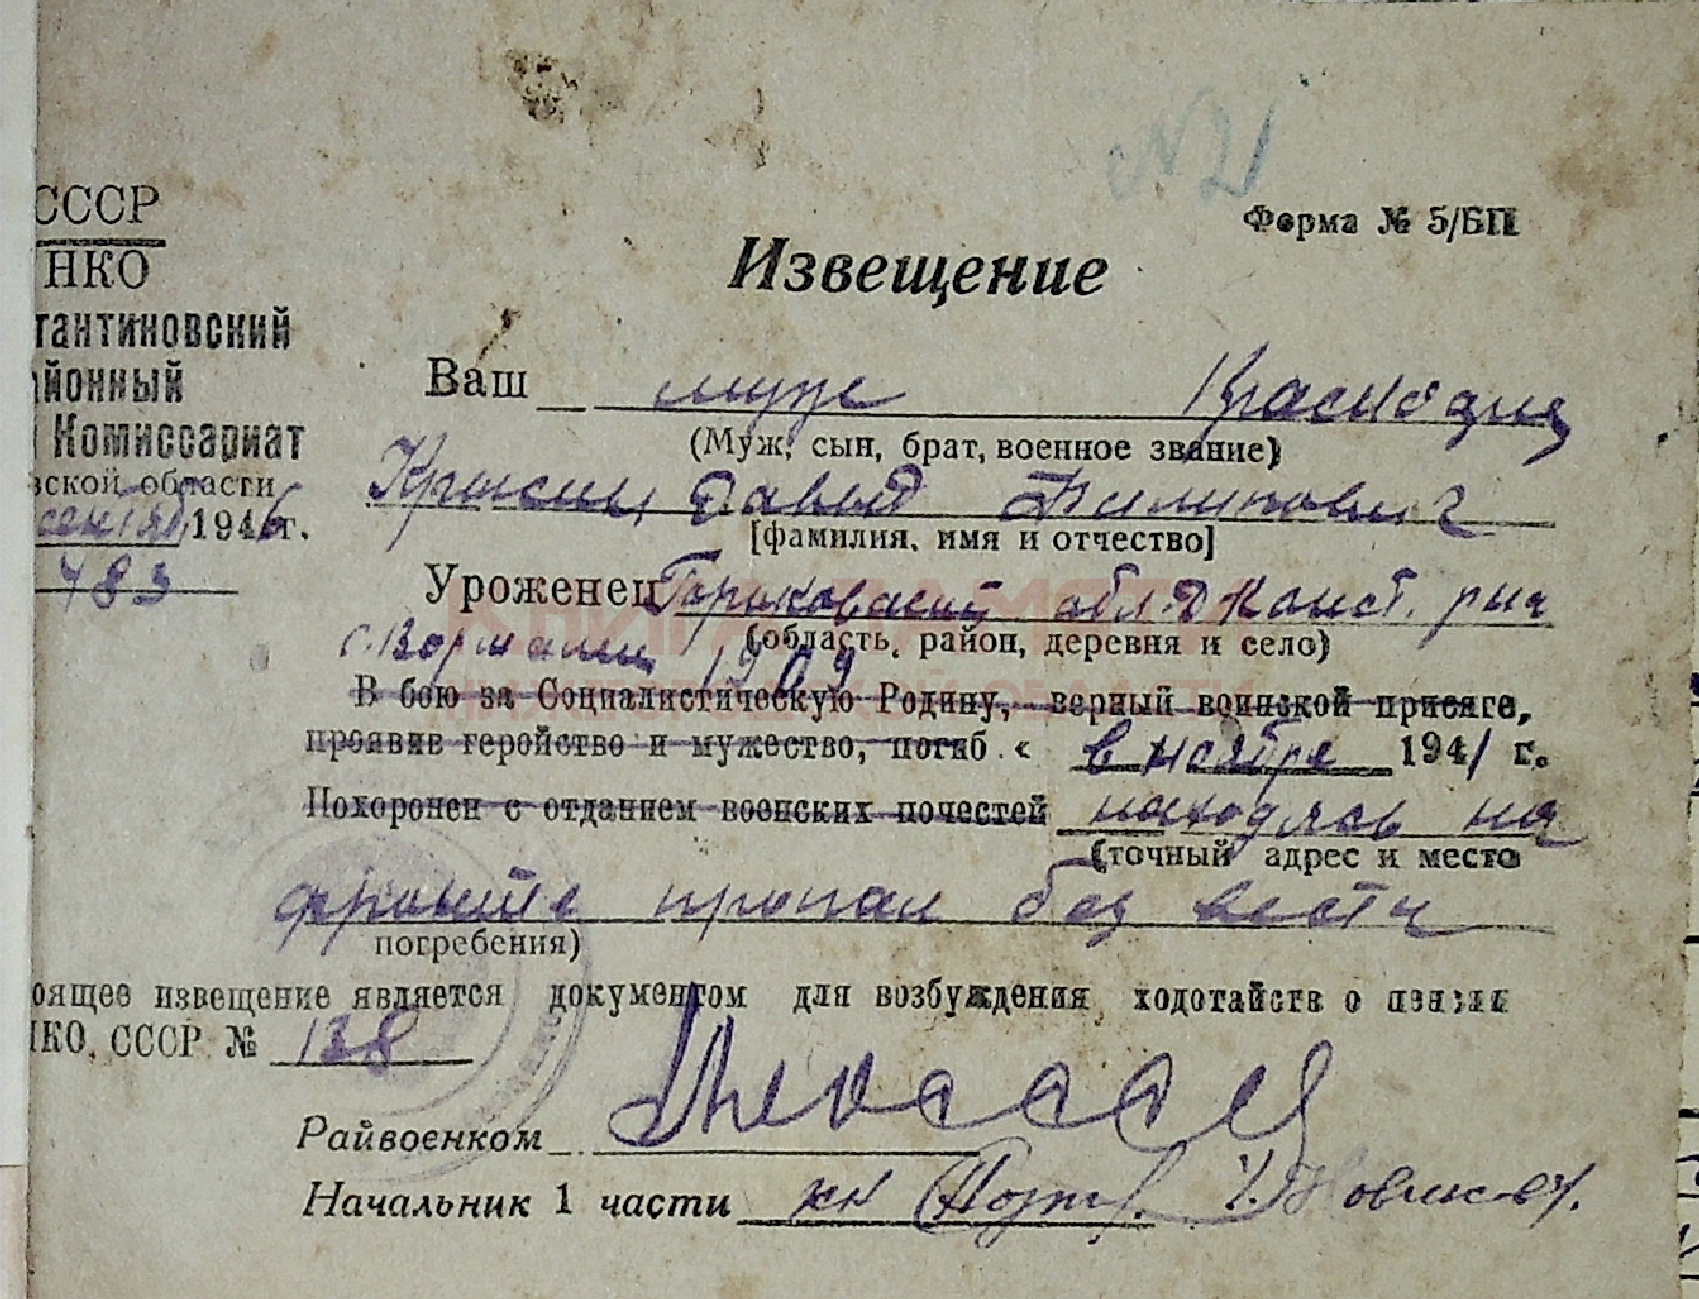 № 21
СССР
НКО
Форма № 5/БП
Извещение
тантиновский
йонный
Комиссариат
ской области
1946 г.
483
Ваш муж Красноарм
(Муж, сын, брат, военное звание)
Давыд Филипович
[фамилия, имя и отчество]
Уроженец Горьковской обл. Д Конст. р-на
(область, район, деревня и село)
с. 1909
В бою за Социалистическую Родину, верный воинской присяге,
проявив геройство и мужество, погиб « в ноябре 1941 г.
Похоронен с отданием воинских почестей находясь на
(точный адрес и место
фронте пропал без вести
погребения)
оящее извещение является документом для возбуждения ходотайств о пензии
НКО, СССР № 138
Райвоенком
Начальник 1 части
КНИГА ПАМЯТИ
НИЖЕГОРОДСКОЙ ОБЛАСТИ